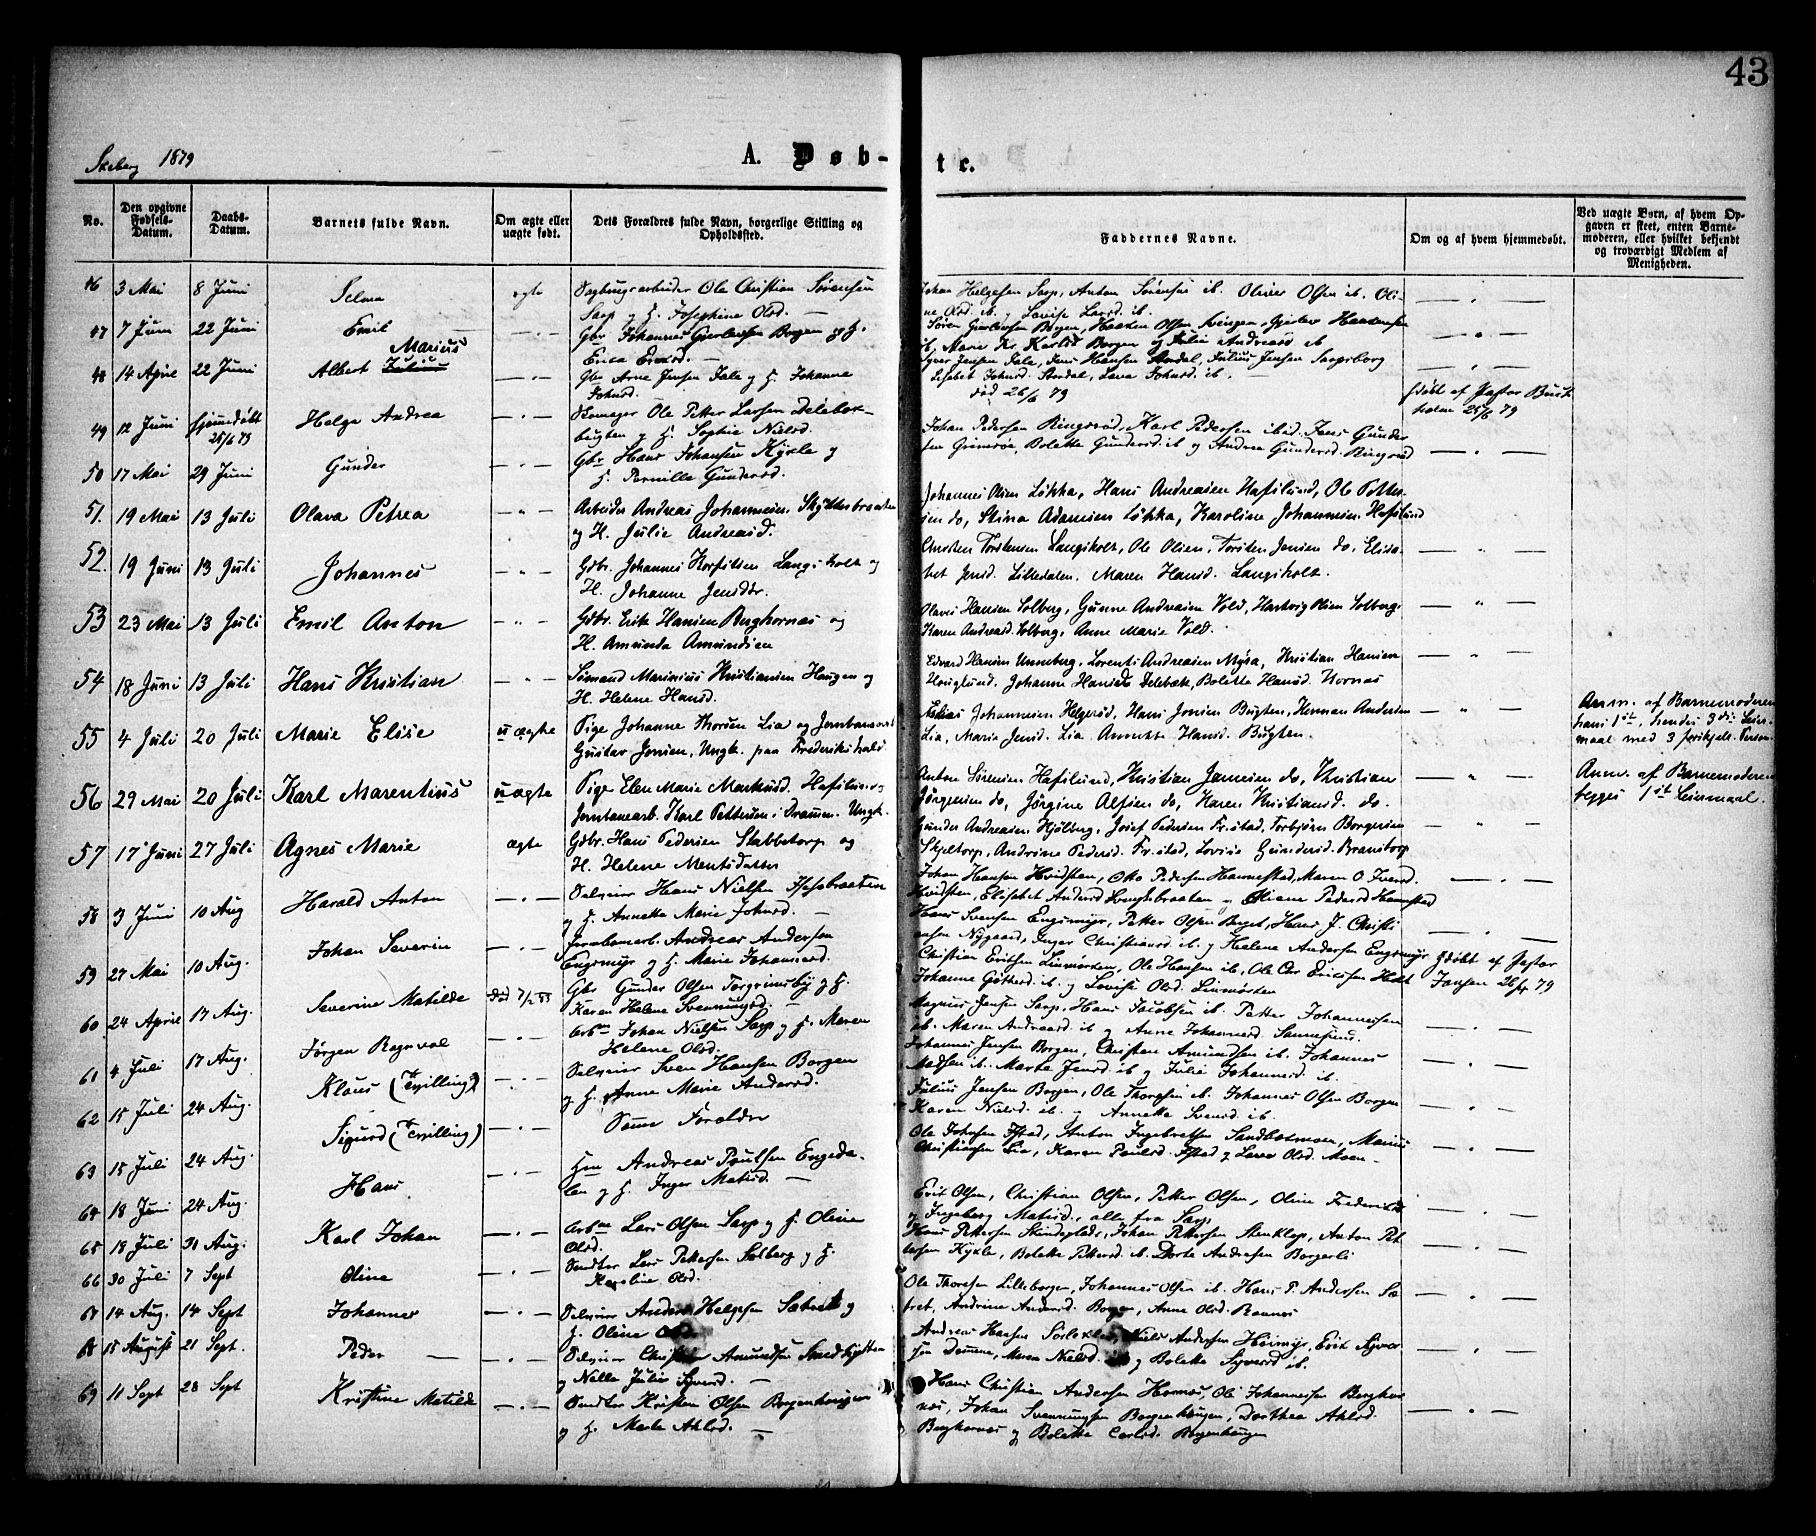 43
Skeberg 1879
A. Døb-
te.
No.
Den opgivne Fødsels-Datum.
Daabs-Datum.
Barnets fulde Navn.
Om ægte eller uægte født.
Dets Forældres fulde Navn, borgerlige Stilling og Opholdssted.
Faddernes Navne.
Om og af hvem hjemmedøbt.
Ved uægte Børn, af hvem Op-
gaven er skeet, enten Barne-
moderen, eller hvilket bekjendt
og troværdigt Medlem af
Menigheden.
46 3 Mai 8 Juni Selma ægte Sagbrugsarbeider Ole Christian Sørensen
Sarp og H. Josephine Olsd. —
Johan Helgesen Sarp, Anton Sørensen ib. Oliver Olsen ib. Oli-
ne Olsd. ib. og Lovise Larsd. ib.
47 7 Juni 22 Juni Emil — Gbr. Johannes Gulbrandsen Borgen og H.
Erica Ericsd. —
Marius
48 14 April 22 Juni Albert Julius — " — Gbr Arne Jensen Tale og H. Johanne
Johnsd. —
død 26/6 79
49 12 Juni hjemmedøbt 25/6 79 Helga Andrea — " — Skomager Ole Petter Larsen Delebæk-
bugten og H. Sophie Nielsd.
døbt af Pastor Buch-
holm 25/6 79
50 17 Mai 29 Juni Gunder — " — Gbr Hans Johansen Kykle og
H. Pernille Gundersd.
Johan Pedersen Ringsrød, Karl Pedersen ibid. Jens Gunder
sen Grimsøe, Bolette Gundersd. ib og Andrea Gundersd. Ringsrød
51. 19 Mai 13 Juli Olava Petrea — " — Arbeider Andreas Johannesen Skytterbraaten
og H. Julie Andreasd.
Johannes Olsen Løkka, Hans Andreasen Hafslund, Ole Petter-
sen do, Stina Adamsen Løkka, Karoline Johannesen Hafslund
52. 19 Juni 13 Juli Johannes — " — Gdbr. Johannes Torstensen Langsholt og
H. Johanne Jensdtr.
Christen Torstensen Langsholt, Ole Olsen, Torsten Jensen do, Elisa-
bet Jensd. Lilledalen. Maren Hansd. Langsholt.
53 23 Mai 13 Juli Emil Anton — " — Gdbr. Erik Hansen Berghornæs og
H. Amunda Amundsen
Olaves Hansen Solberg, Gunne Andreasen Vold, Hartvig Olsen Solberg,
Karen Andreasd. Solberg, Anne Marie Vold.
54 18 Juni 13 Juli Hans Kristian — " — Sømand Marinius Kristiansen Haugen og
H. Helene Hansd.
Edvard Hansen Unneberg, Lorents Andreasen Mysa, Kristian Hansen
Houglund. Johanne Hansd. Delebæk, Bolette Hansd. Hornæs
55 4 Juli 20 Juli Marie Elise uægte Pige Johanne Thorsen Lia og Jernbanearb.
Gustav Jonsen, Ungk. paa Frederikshald
Johannesen Helgerød, Hans Jonsen Bugten, Herman Andersen
Lia, Marie Jensd. Lia Annette Hansd. Bugten.
Anm. af Barnemoderen
hans 1st, hendes 3die Leier-
maal med 3 forskjell. Person.
56 29 Mai 20 Juli Karl Marentius uægte Pige Elen Marie Markusd. Hafslund og
Jernbanearb. Karl Pettersen i Drammen. Ungk.
Anton Sørensen Hafslund, Kristian Jansen do, Kristian
Jørgensen do, Jørgine Alfsen do, Karen Kristiansd. do.
Anm. af Barnemoderen
begges 1st Leiermaal.
57 17 Juni 27 Juli Agnes Marie ægte Gdbr. Hans Pedersen Skabbetorp og
H. Helene Mentsdatter
Gunder Andreasen Hjølberg, Josef Pedersen Fr.stad, Torbjørn Borgersen
Skjeltorp, Andrine Pedersd. Fr.stad, Lovise Gundersd. Brandtorp
58 3 Juni 10 Aug Harald Anton — " — Selveier Hans Nielsen
og H. Annette Marie Johnsd. —
Johan Hansen Hvidsten, Otto Pedersen Hannestad, Maren O. Iversd.
Hvidsten, Elisabet Andersd. og Oliane Pedersd. Hannestad
59 27 Mai 10 Aug. Johan Severin — " — Jernbanearb. Andreas Anderson
Engsmyr og H. Marie Johannesd.
Hans Svensen Engsmyr, Petter Olsen Berget, Hans J. Christi
ansen Nygaard, Inger Christiansd. ib. og Helene Andersen Engsmyr
60 24 April 17 Aug. Severine Matilde død 7/2 83 Gbr Gunder Olsen Torgrimsby og H.
Karen Helene Svenningsd. —
Christian Erichsen Linnerten, Ole Hansen ib, Ole Chr Ericsen Holt
Johanne ib. og Lovise Olsd. Linnerten
døbt af Pastor
Jansen 26/4 79
61 4 Juli 17 Aug. Jørgen Ragnval — " — Arbm Johan Nielsen Sarp og H. Maren
Helene Olsd.
Magnus Jensen Sarp, Hans Jacobsen ib. Petter Johannesen
ib. Maren Andreasd. ib og Anne Johannesd. Sannesund.
62 15 Juli 24 Aug. Klaus (Tvilling) — " — Selveier Sven Hansen Borgen
og H. Anne Marie Andersd.
Johannes Jensen Borgen, Christen Amundsen ib. Johannes
Madsen ib. Marte Jensd. ib og Julie Johannesd. ib.
63 15 Juli 24 Aug. Sigurd (Tvilling) — " — Samme Forældre
Julius Jensen Borgen, Ole Thoresen ib. Johannes Olsen Borgen
Karen Nielsd. ib. og Annette Svensd. ib.
64 18 Juni 24 Aug. Hans — " — Hm Andreas Poulsen Engeda-
len og H. Inger Matisd. —
Ole Johnsen Istad, Anton Ingebretsen Sandbæmoen, Marius
Christiansen Lia, Karen Paulsd. Istad og Lava Olsd. Moen —
65 18 Juli 31 Aug. Karl Johan — " — Arbm Lars Olsen Sarp og H. Oline
Olsd.
Erik Olsen, Christian Olsen, Petter Olsen, Oline Fredriksd.
og Ingeborg Matisd., alle fra Sarp
66 30 Juli 7 Sept Oline — " — Smed Lars Pettersen Solberg og H.
Karoline Olsd.
Hans Pettersen Skindeplads, Johan Pettersen Stenklep, Anton Pet
tersen Kykle, Bolette Pettersd. ib. Dorte Andersen Borgerli
67 14 Aug. 14 Sept Johannes — " — Selveier Anders Helgesen Sætret og
H. Oline Olsd.
Ole Thoresen Lilleborgen, Johannes Olsen ib. Hans P. Andersen Sæ
tret, Andrine Andersd. Borgen, Anne Olsd. Rannes
68 15 August 21 Sept. Peder — — " — Selveier Christian Amundsen Smedskytten
og Nelle Julie Syversd. —
Andreas Hansen Sorlokka, Niels Andersen Heimyr, Erik Syver
sen Dammen, Maren Nielsd. ib og Bolette Syversd ib.
69 11 Sept 28 Sept Kristine Matilde — " — Kristen Olsen Borgenhaugen
og H. Marte Ahlsd. —
Hans Christian Andersen Hornæs, Ole Johannesen Berghor
næs, Johan Svenningsen Borgenhaugen, Dorthea Ahlsd.
Berghornæs og Bolette Carlsd. Borgenhaugen